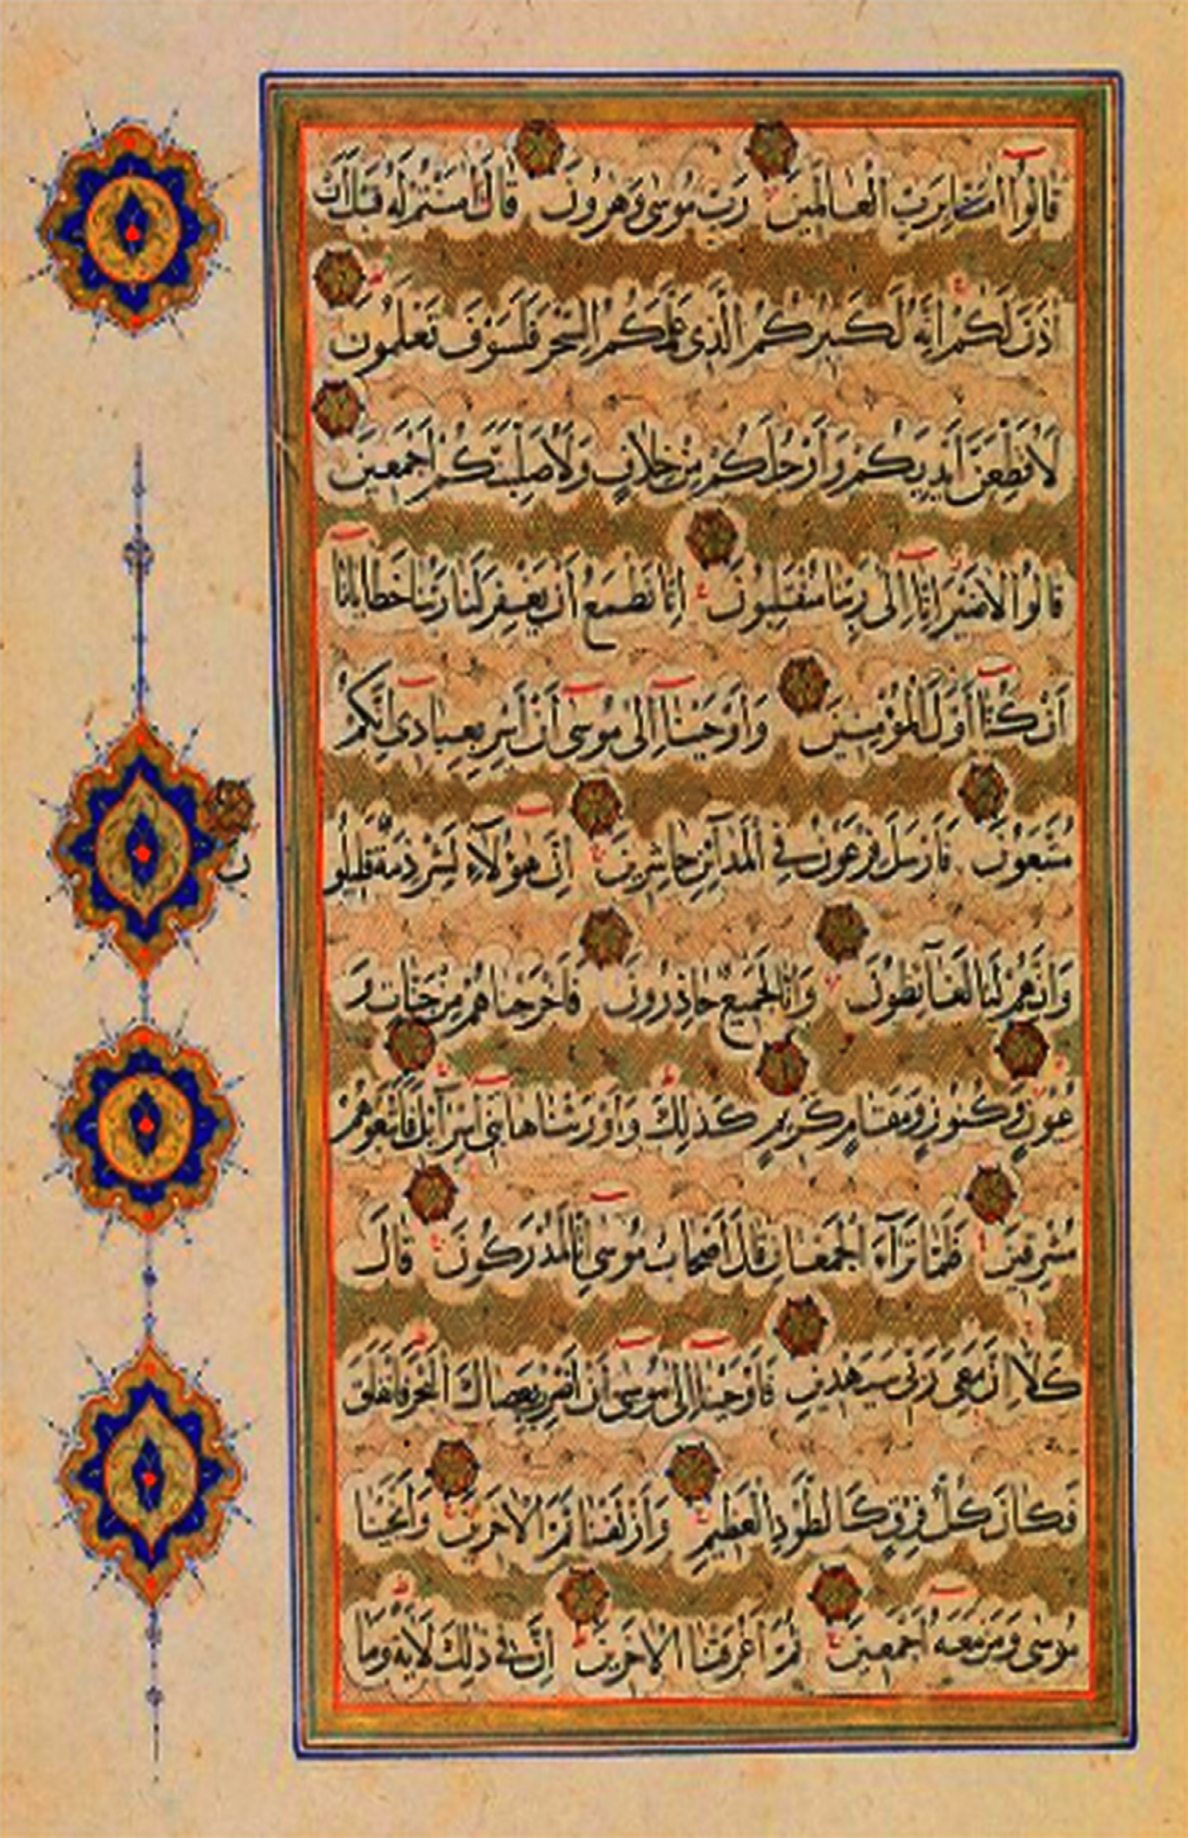 قَالُوا اٰمَنَّا بِرَبِّ الْعَالَمِينَ رَبِّ مُوسٰى وَهٰرُونَ قَالَ اٰمَنْتُمْ لَهُ قَبْلَ اَنْ
اٰذَنَ لَكُمْ اِنَّهُ لَكَبِيرُكُمُ الَّذِى عَلَّمَكُمُ السِّحْرَ فَلَسَوْفَ تَعْلَمُونَ
لَاُقَطِّعَنَّ اَيْدِيَكُمْ وَاَرْجُلَكُمْ مِنْ خِلَافٍ وَلَاُصَلِّبَنَّكُمْ اَجْمَعِينَ
قَالُوا لَا ضَيْرَ اِنَّا اِلٰى رَبِّنَا مُنْقَلِبُونَ اِنَّا نَطْمَعُ اَنْ يَغْفِرَ لَنَا رَبُّنَا خَطَايَانَا
اَنْ كُنَّا اَوَّلَ الْمُؤْمِنِينَ وَاَوْحَيْنَا اِلٰى مُوسٰى اَنْ اَسْرِ بِعِبَادِى اِنَّكُمْ
مُتَّبَعُونَ فَاَرْسَلَ فِرْعَوْنُ فِى الْمَدَآئِنِ حَاشِرِينَ اِنَّ هٰؤُلَآءِ لَشِرْذِمَةٌ قَلِيلُو
نَ
وَاِنَّهُمْ لَنَا لَغَآئِظُونَ وَاِنَّا لَجَمِيعٌ حَاذِرُونَ فَاَخْرَجْنَاهُمْ مِنْ جَنَّاتٍ وَ
عُيُونٍ وَكُنُوزٍ وَمَقَامٍ كَرِيمٍ كَذٰلِكَ وَاَوْرَثْنَاهَا بَنِى اِسْرَآئِلَ فَاَتْبَعُوهُمْ
مُشْرِقِينَ فَلَمَّا تَرَآءَ الْجَمْعَانِ قَالَ اَصْحَابُ مُوسٰى اِنَّا لَمُدْرَكُونَ قَالَ
كَلَّا اِنَّ مَعِىَ رَبِّى سَيَهْدِينِ فَاَوْحَيْنَا اِلٰى مُوسٰى اَنِ اضْرِبْ بِعَصَاكَ الْبَحْرَ فَانْفَلَقَ
فَكَانَ كُلُّ فِرْقٍ كَالطَّوْدِ الْعَظِيمِ وَاَزْلَفْنَا ثَمَّ الْاٰخَرِينَ وَاَنْجَيْنَا
مُوسٰى وَمَنْ مَعَهُ اَجْمَعِينَ ثُمَّ اَغْرَقْنَا الْاٰخَرِينَ اِنَّ فِى ذٰلِكَ لَاٰيَةً وَمَا